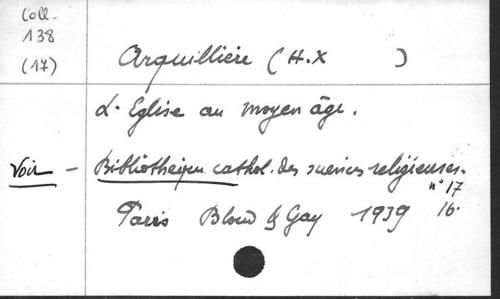 Coll.
138
(17)
Arquillière (H.X )
L'Eglise au moyen âge.
Voir - Bibliothèque cathol. des sciences religieuses.
n° 17
Paris Bloud & Gay 1939 16.